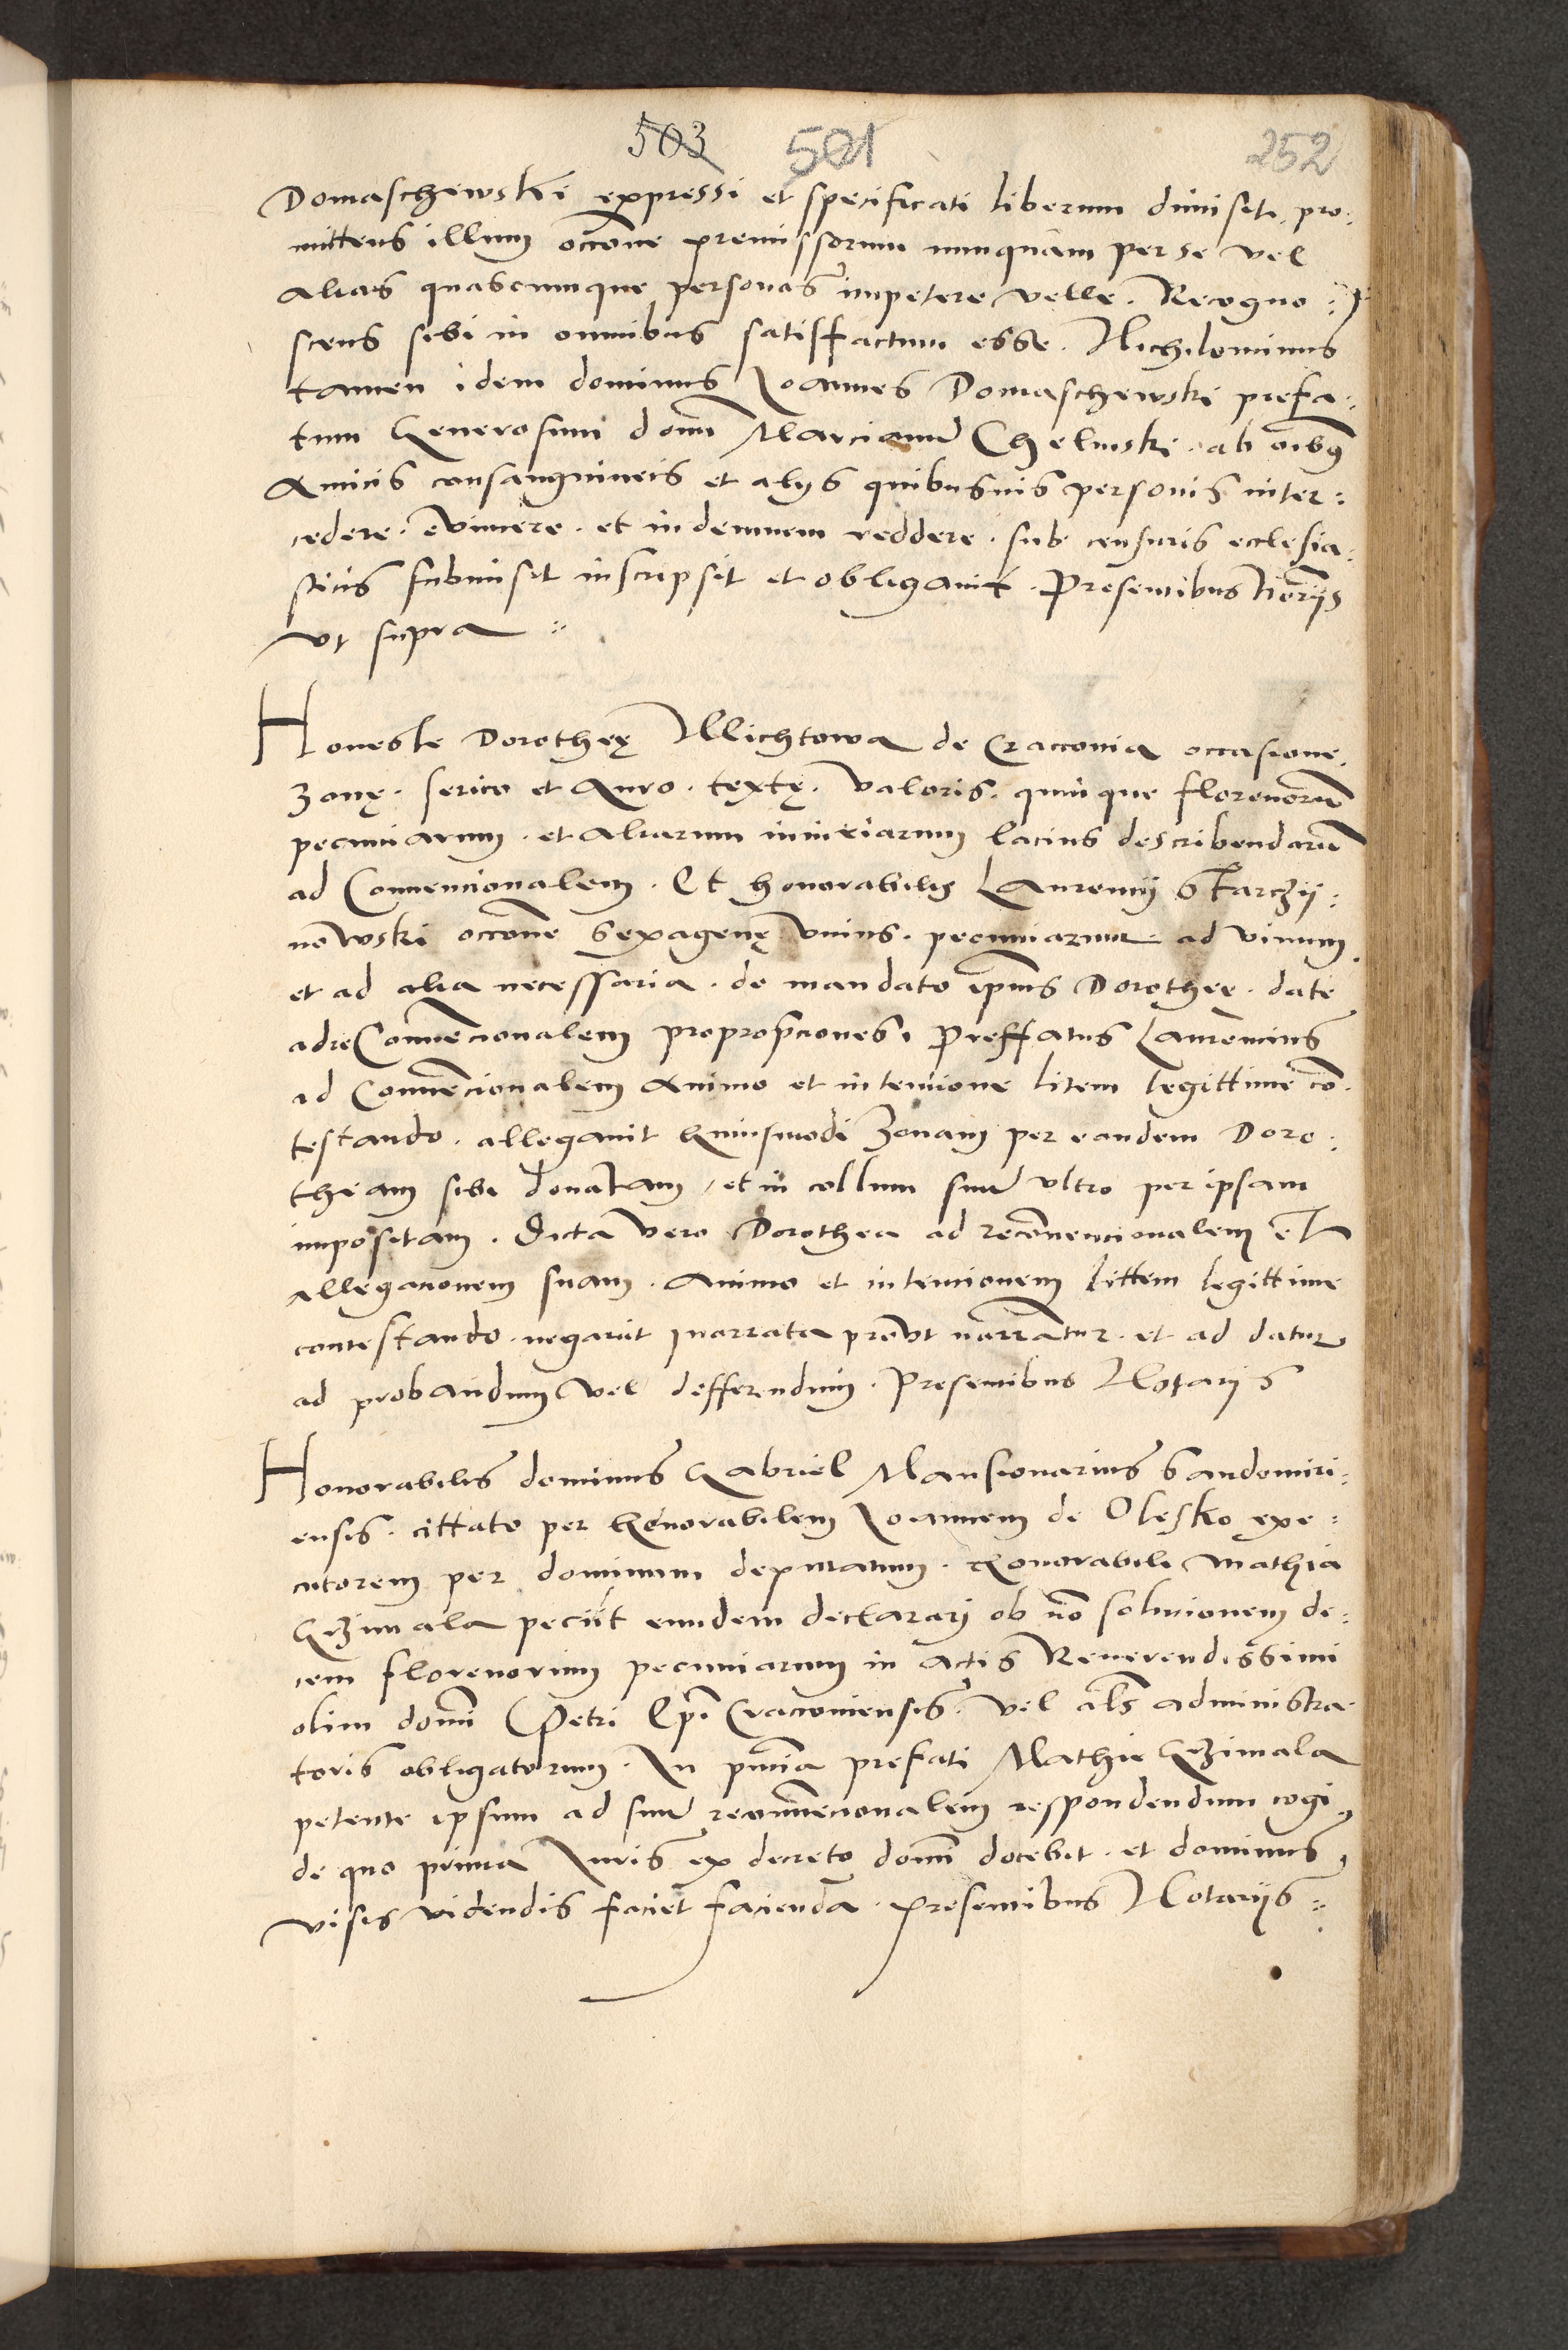 503 501 252
Domaschewski expressi et specificati liberum dimisit pro:
mittens illum occone premissorum nunquam per se vel
alias quascumque personas impetere velle. Recogno:
scens sibi in omnibus satisffactum esse. Nichilominus
tamen idem dominus Joannes Domaschewski prefa:
tum Generosum domi Marcianum Chelmski. ab oibus
Amicis consanguineis et alijs quibusuis personis inter:
cedere. evincere. et indemnem reddere. sub censuris ecclesia:
sticis submisit inscripsit et obligauit. Presentibus Norijs
vt supra
Honeste Dorotheę Michtowa de Cracouia occasione.
Zonę. serico et Auro. textę. valoris. quinque florenorum
pecuniarum. et aliarum iniuriarum lacius describendarum
ad Conuencionalem. Et honorabilis Laurencij Starczÿ:
nowski occone sexagenę vnius. pecuniarum ad vinum
et ad alia necessaria. de mandato ipsius Dorotheę. date
ad reConuencionalem propropciones. Preffatus Laurencius
ad Conuencionalem Animo et intencione litem legittime con
testando. allegauit huiusmodi Zonam per eandem Doro:
theam sibi donatam, et in collum suum vltro per ipsam
impositam. Dicta vero Dorothea ad reconuencionalem et
allegacionem suam. Animo et intencionem littem legittime
contestando. negauit narrata prout narrantur. et ad datur
ad probandum vel defferendum. Presentibus Notarijs
Honorabilis dominus Gabriel Mansionarius Sandomiri:
ensis. cittato per honorabilem Joannem de Olesko exe:
cutorem per dominum deputatum. Honorabili Mathia
Grzimala peciit eundem declarari ob non solucionem de:
cem florenorum pecuniarum in actis Reuerendissimi
olim domi Petri Epi Cracouiensis. vel als administra
toris obligatorum. In pncia prefati Mathie Grzimala
petente ipsum ad suam reconuencionalem respondendum cogi
de quo prima Juris ex decreto domi docebit. et dominus
visis videndis faciet facienda. presentibus Notarijs